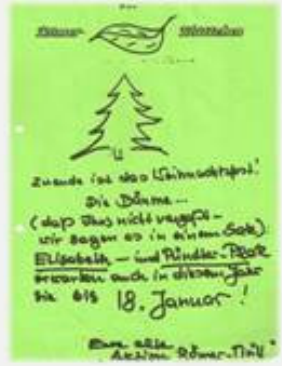 Römer- Blättchen
Zuende ist das Weihnachtsfest!
Die Bäume...
(daß Ihrs nicht vergeßt-
wir sagen es in einem Satz):
Elisabeth - und Pündter-Platz
erwarten auch in diesem Jahr
sie bis 18. Januar!
Eure alte
Aktion Römer-Müll"